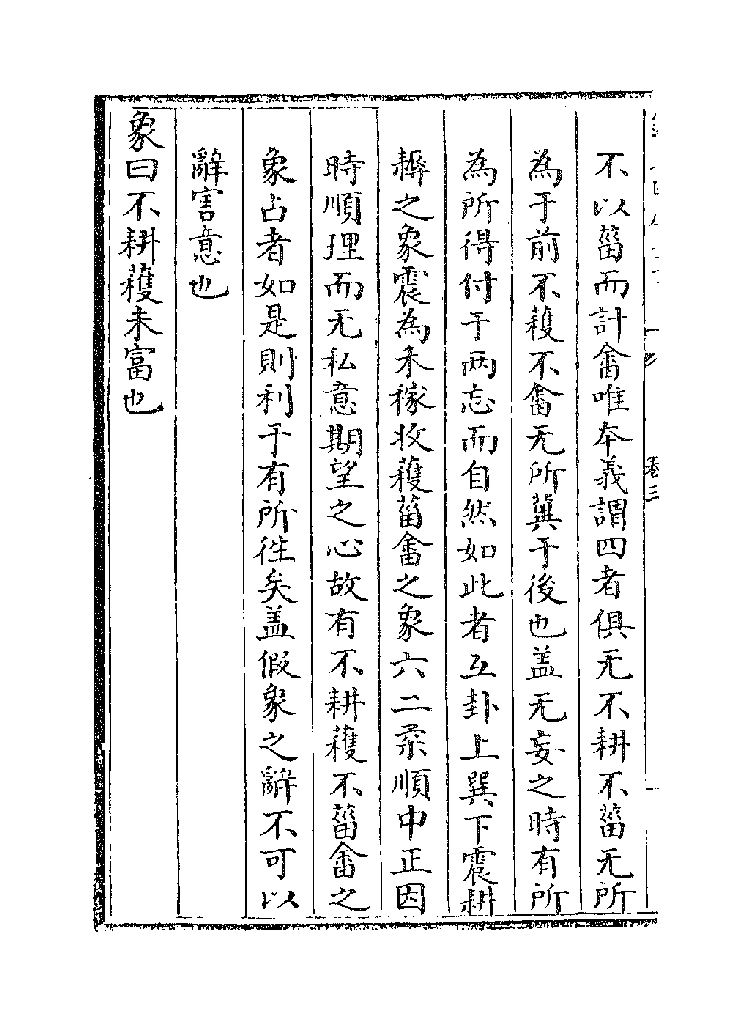 不以葘而計畬唯本義謂四者俱无不耕不葘无所
為于前不穫不畬无所冀于後也盖无妄之時有所
為所得付于兩忘而自然如此者互卦上巽下震耕
耨之象震為禾稼收穫葘畬之象六二柔順中正因
時順理而无私意期望之心故有不耕穫不葘畬之
象占者如是則利于有所徃矣盖假象之辭不可以
辭害意也
象曰不耕穫未富也
卷三